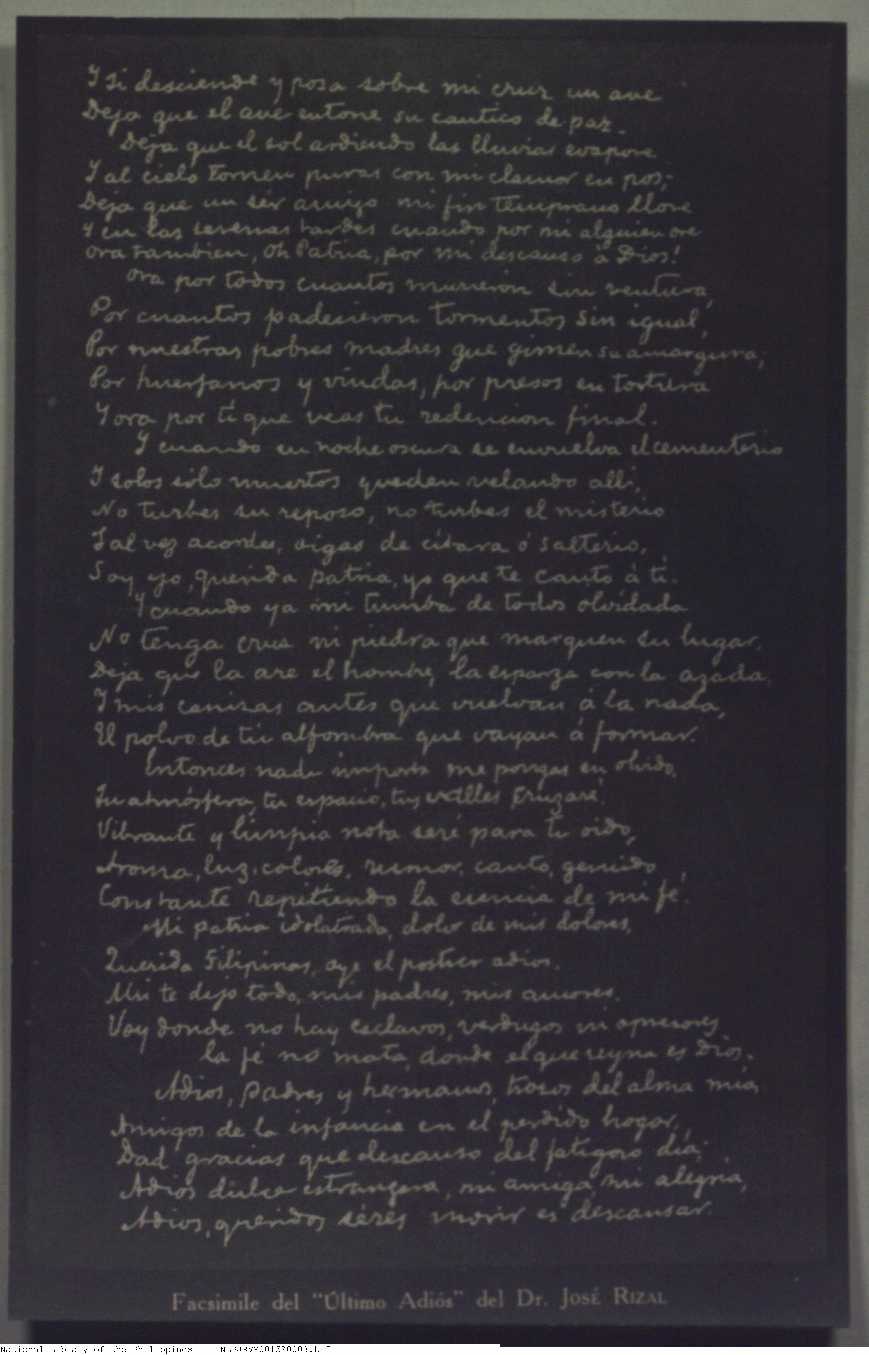 Y si desciende y posa sobre mi cruz un ave
Deja que el ave entone su cantico de paz.
Deja que el sol ardiendo las lluvias evapore
Y al cielo tornen puras con mi clamor en pos;
Deja que un sér amigo mi fin temprano llore
Y en las serenas tardes cuando por mi alguien ore
Ora tambien, Oh Patria, por mi descanso á Dios!
Ora por todos cuantos murieron sin ventura,
Por cuantos padecieron tormentos sin igual,
Por nuestras pobres madres que gimen su amargura;
Por huerfanos y viudas, por presos en tortura
Y ora por tí que veas tu redencion final.
Y cuando en noche oscura se envuelva el cementerio
Y solos sólo muertos queden velando allí,
No turbes su reposo, no turbes el misterio
Tal vez acordes oigas de cítara ó salterio,
Soy yo, querida patria, yo que te canto á ti.
Y cuando ya mi tumba de todos olvidada
No tenga cruz ni piedra que marquen su lugar,
Deja que la are el hombre, la esparza con la azada,
Y mis cenizas antes que vuelvan á la nada,
El polvo de tu alfombra que vayan á formar.
Entonces nada importa me pongas en olvido,
Tu atmósfera, tu espacio, tus valles cruzaré.
Vibrante y limpia nota seré para tu oido,
Aroma, luz, colores, rumor, canto, gemido
Constante repitiendo la esencia de mi fé.
Mi patria idolatrada, dolor de mis dolores,
Querida Filipinas, oye el postrer adios.
Ahi te dejo todo, mis padres, mis amores.
Voy donde no hay esclavos, verdugos ni opresores
la fé no mata, donde el que reyna es Dios.
Adios, padres y hermanos, trozos del alma mia,
Amigos de la infancia en el perdido hogar,
Dad gracias que descanso del fatigoso día;
Adios dulce estrangera, mi amiga, mi alegria,
Adios, queridos séres morir es descansar.
Facsimile del "Último Adiós" del Dr. JOSÉ RIZAL
National Library of the Philippines